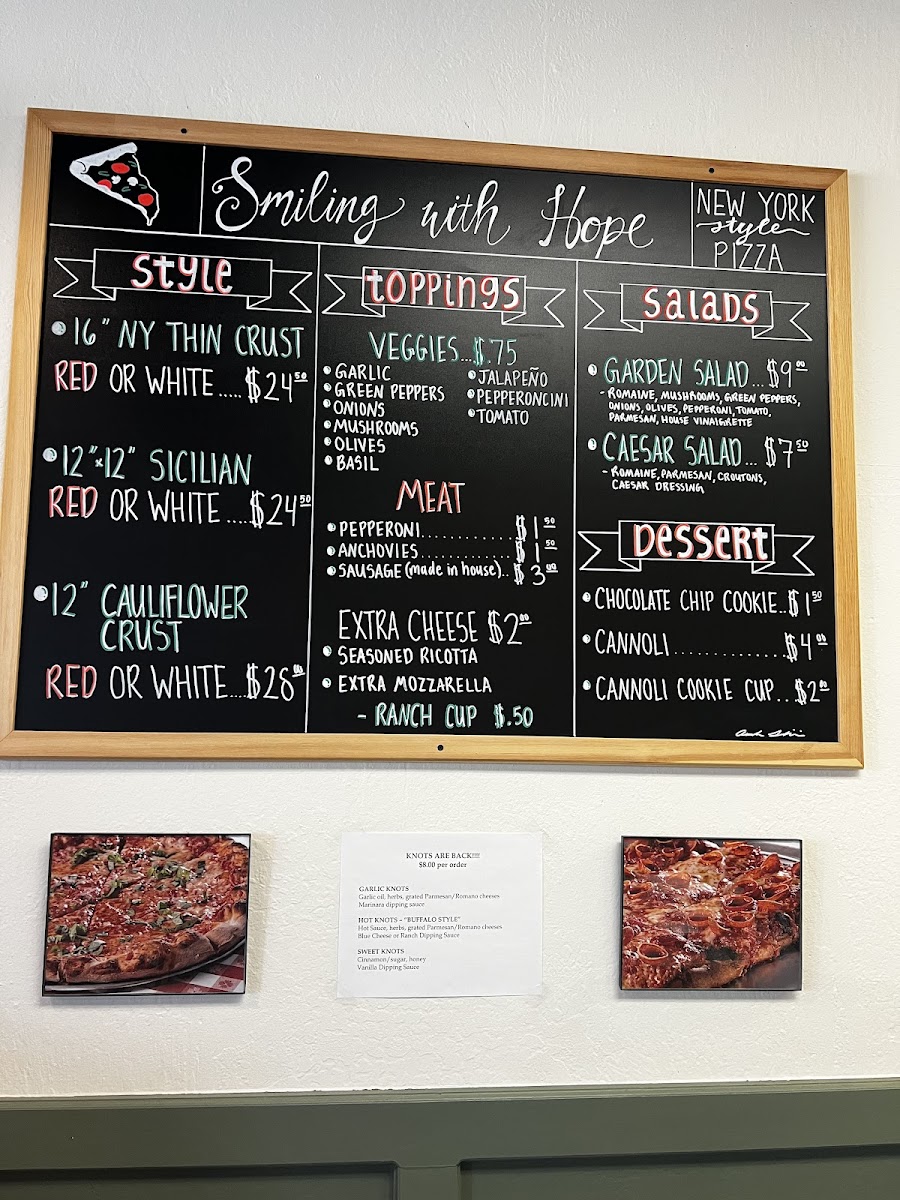 Smiling with Hope
NEW YORK
style
PIZZA
STYLE
16" NY THIN CRUST
RED OR WHITE.....$24.50
12"x12" SICILIAN
RED OR WHITE.....$24.50
12" CAULIFLOWER
CRUST
RED OR WHITE....$26.00
TOPPINGS
VEGGIES...$.75
• GARLIC
• GREEN PEPPERS
• ONIONS
• MUSHROOMS
• OLIVES
• BASIL
• JALAPEÑO
• PEPPERONCINI
• TOMATO
MEAT
• PEPPERONI..........$1.50
• ANCHOVIES..........$1.50
• SAUSAGE (made in house)..$3.00
EXTRA CHEESE $2.00
• SEASONED RICOTTA
• EXTRA MOZZARELLA
- RANCH CUP $.50
SALADS
• GARDEN SALAD...$9.00
- ROMAINE, MUSHROOMS, GREEN PEPPERS,
ONIONS, OLIVES, PEPPERONI, TOMATO,
PARMESAN, HOUSE VINAIGRETTE
• CAESAR SALAD...$7.50
- ROMAINE, PARMESAN, CROUTONS,
CAESAR DRESSING
DESSERT
• CHOCOLATE CHIP COOKIE..$1.50
• CANNOLI.............$4.00
• CANNOLI COOKIE CUP...$2.00
KNOTS ARE BACK!!!!
$8.00 per order
GARLIC KNOTS
Garlic oil, herbs, grated Parmesan/Romano cheeses
Marinara dipping sauce
HOT KNOTS – "BUFFALO STYLE"
Hot Sauce, herbs, grated Parmesan/Romano cheeses
Blue Cheese or Ranch Dipping Sauce
SWEET KNOTS
Cinnamon/sugar, honey
Vanilla Dipping Sauce